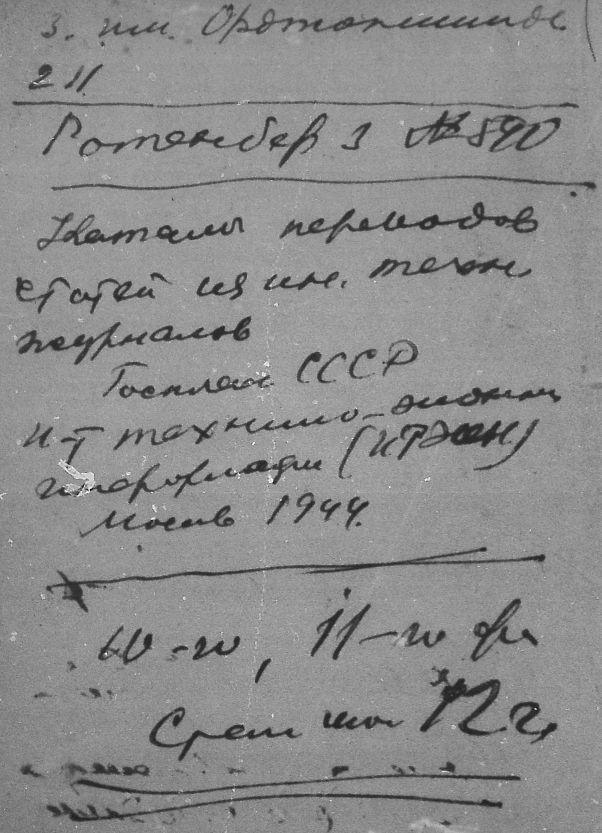 З. им. Орджоникидзе
211
Ротенберг З № 890
Каталог переводов
статей из ин. техн.
журналов
Госплан СССР
И-т технико-эконом
информации (ИТЭИН)
Москва 1944.
10-го, 11-го фе
12 г.